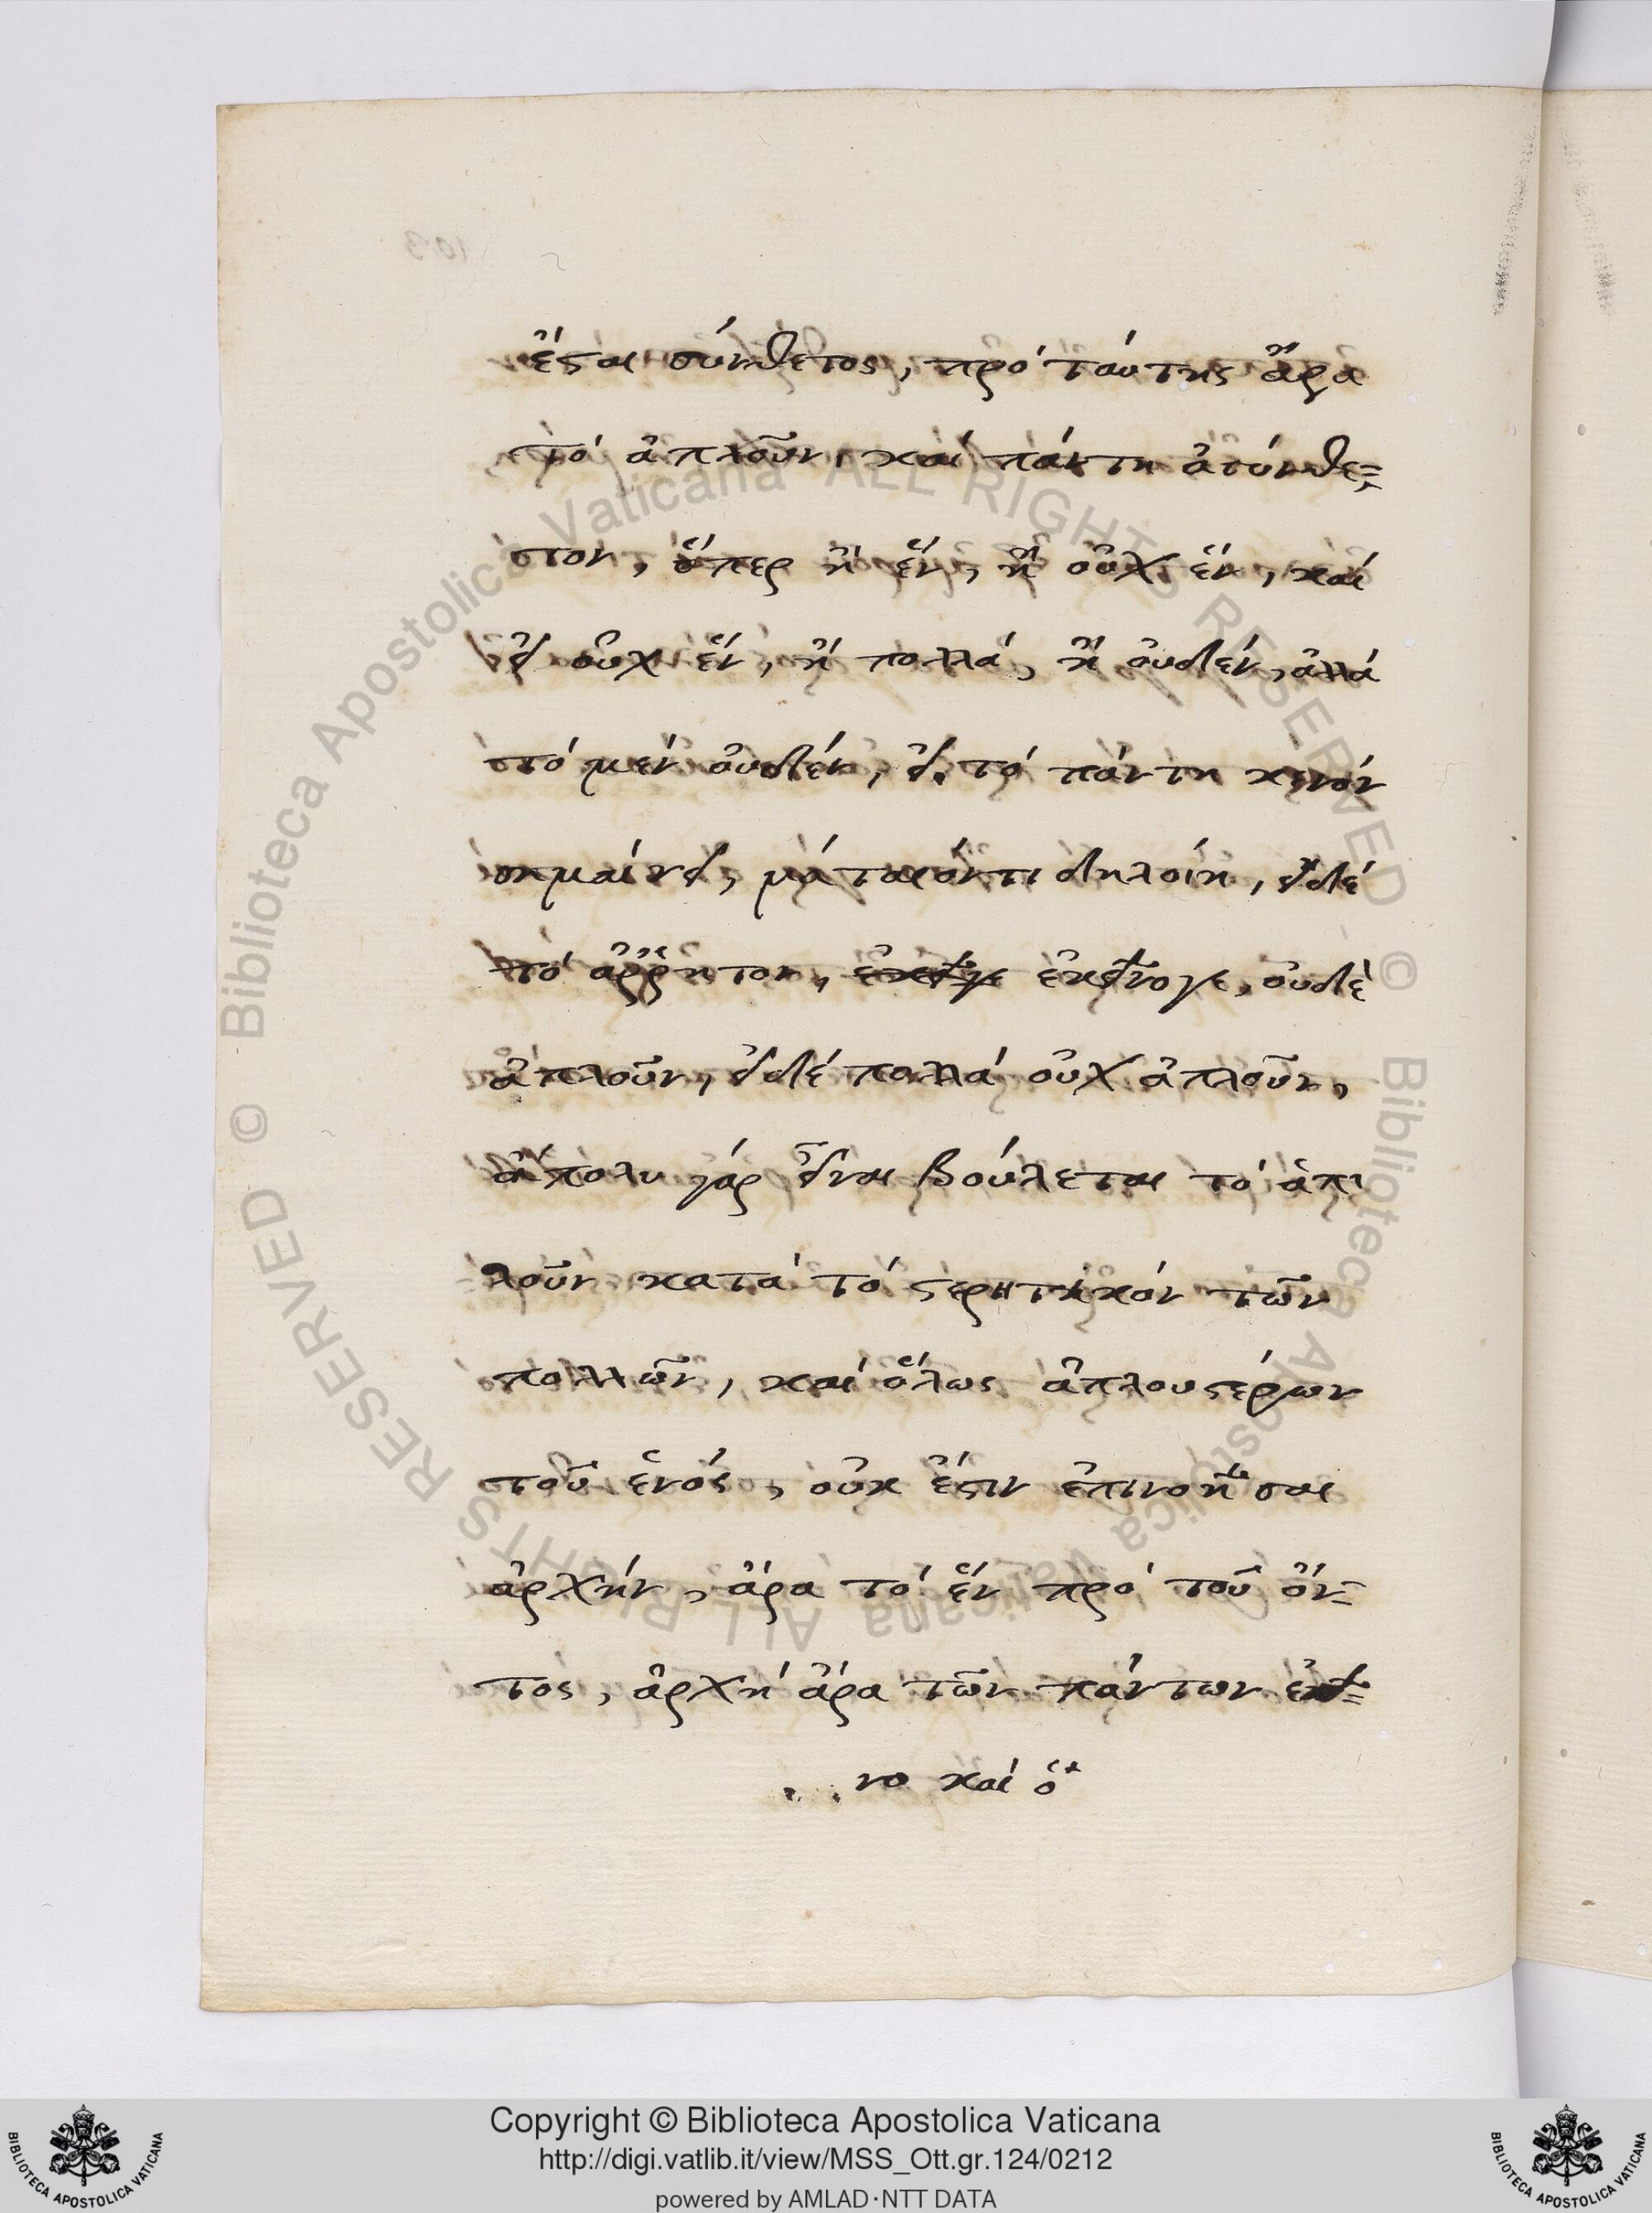 ἔσται σύνθετος, πρό ταύτης ἄρα
τό ἁπλοῦν, καί πάντη ἀσύνθε=
τον, ὅπερ ἢ ἕν, ἢ οὐχ ἕν, καί
εἰ οὐχ ἕν, ἢ πολλά, ἢ οὐδέν, ἀλλά
τό μέν οὐδέν, εἰ τό πάντη κενόν
σημαίνει, μάταιόν τι δηλοίη, εἰ δέ
τό ἄῤῥητον, ἐκεῖνογε, οὐδὲ
ἁπλοῦν, εἰ δέ πολλά οὐχ ἁπλοῦν,
ἄπολυ γάρ εἶναι βούλεται τό ἁπ
λοῦν κατά τό στερητικόν τῶν
πολλῶν, καί ὅλως ἁπλουστέραν
τοῦ ἑνός, οὐκ ἔστιν ἐπινοῆσαι
ἀρχήν, ἄρα τό ἕν πρό τοῦ ὄν=
τος, ἀρχή ἄρα τῶν πάντων ἐκεῖ=
νο καί ὁ
Copyright © Biblioteca Apostolica Vaticana
http://digi.vatlib.it/view/MSS_Ott.gr.124/0212
powered by AMLAD·NTT DATA
BIBLIOTECA APOSTOLICA VATICANA
BIBLIOTECA APOSTOLICA VATICANA
© Biblioteca Apostolica Vaticana ALL RIGHTS RESERVED © Biblioteca Apostolica Vaticana ALL RIGHTS RESERVED